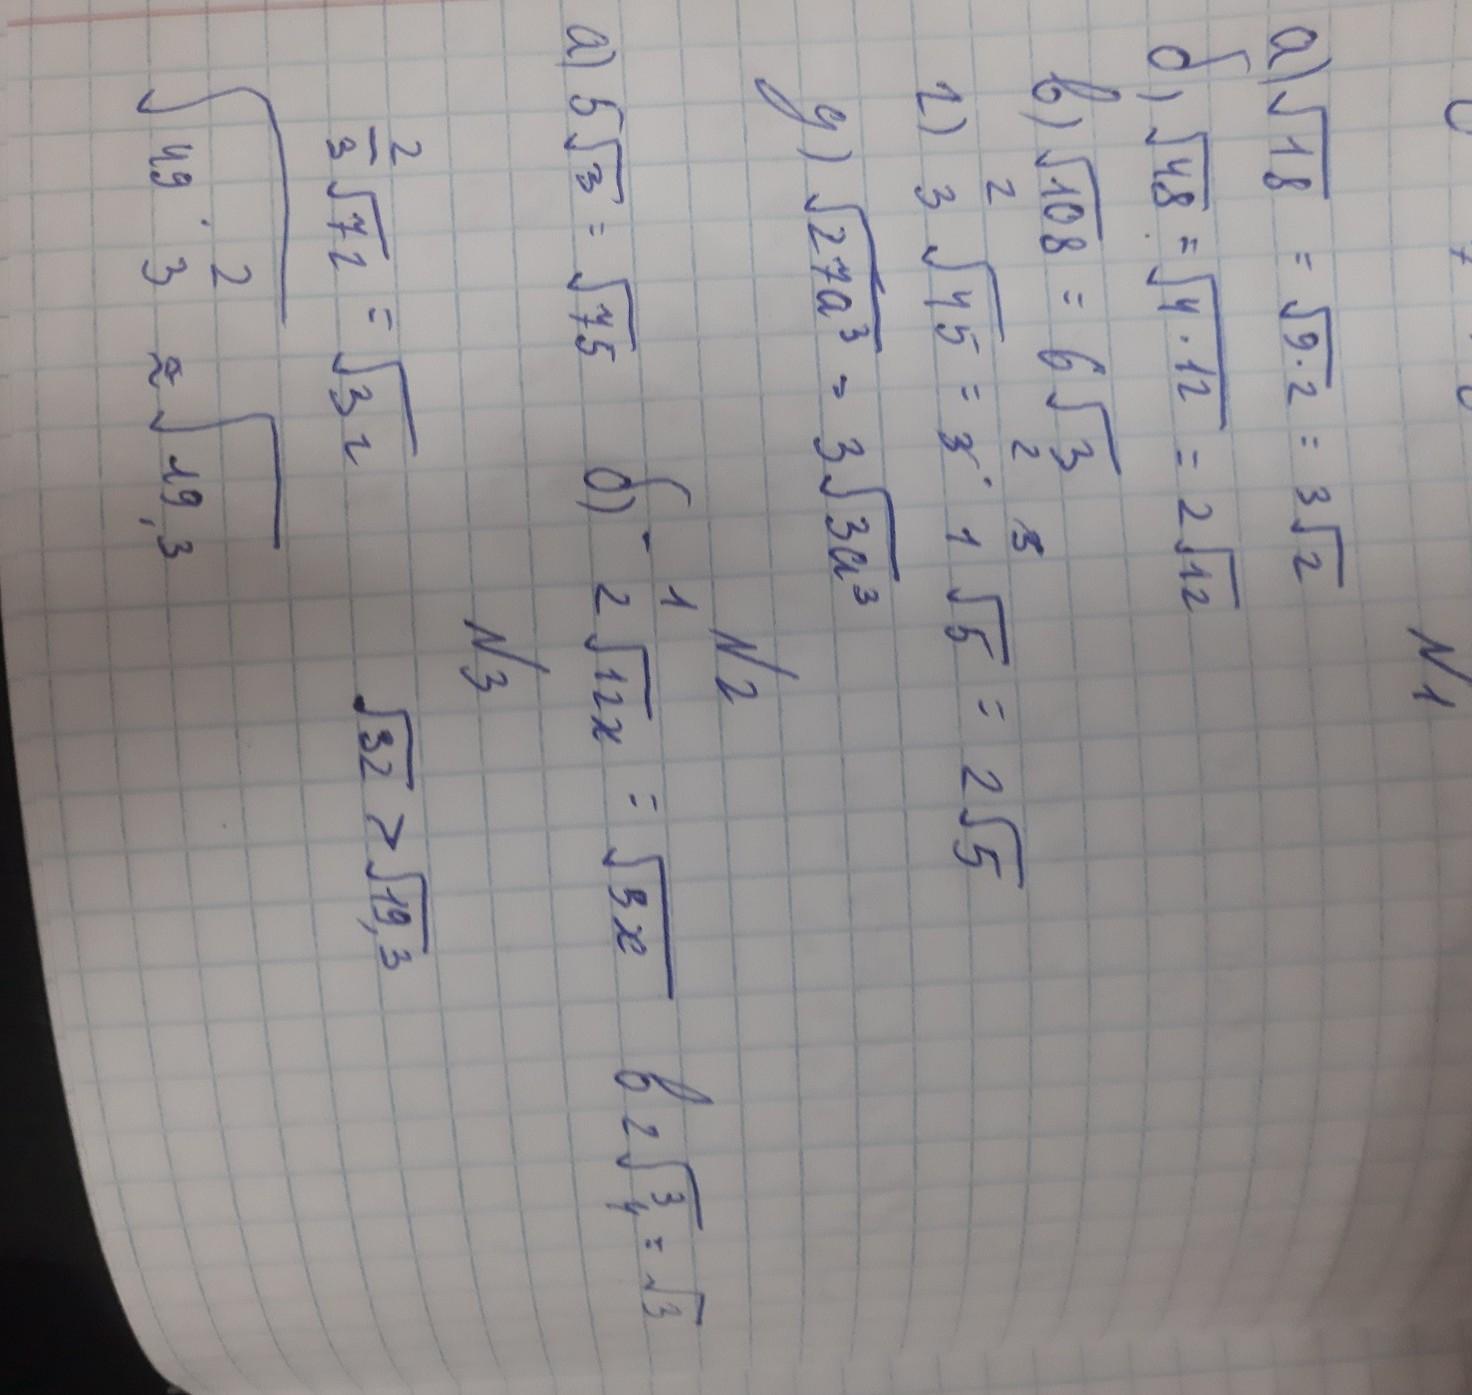 N1
а) √18 = √9·2 = 3√2
б) √48 = √4·12 = 2√12
в) √108 = 6√3
г) 2/3 √45 = 2/3 · 3/1 √5 = 2√5
д) √27a³ = 3√3a³
N2
а) 5√3 = √75 б) - 1/2 √12x = √3x в 2√3/4 = √3
N3
2/3 √72 = √32 √32 > √19,3
√49 · 2/3 ≈ √19,3